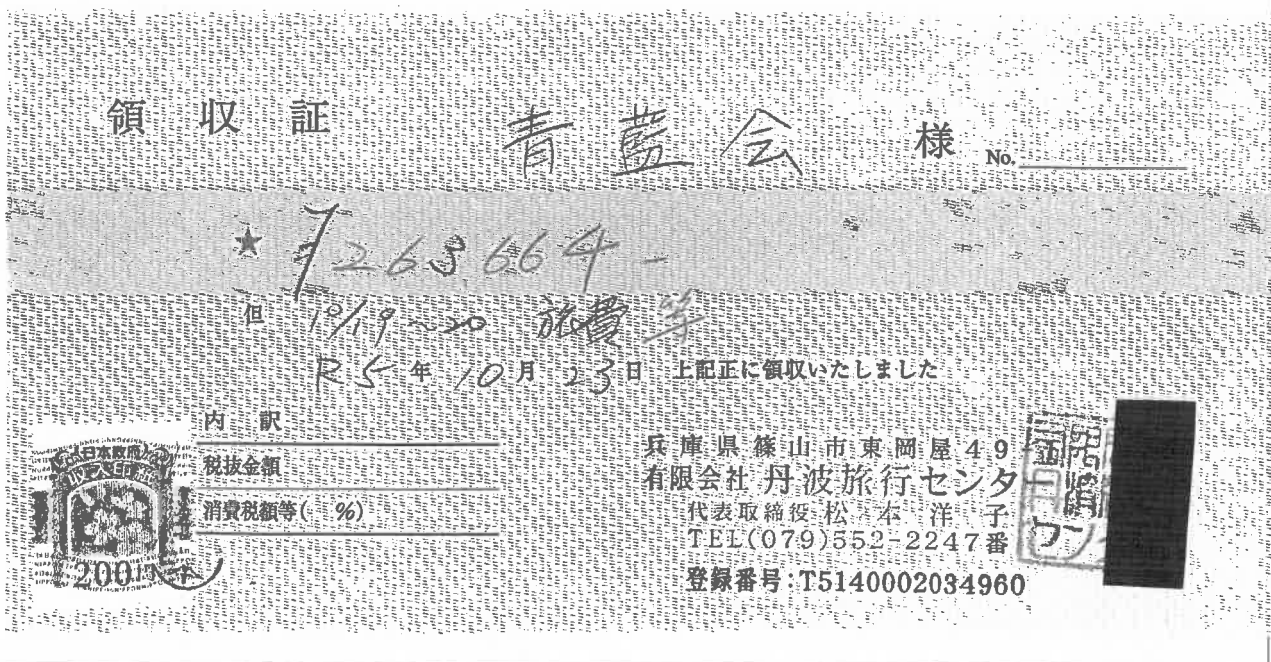 領収証 青藍会 様 No.
★ ¥263,664-
但 10/19~20 旅費等
R5年10月23日 上記正に領収いたしました
内訳
税抜金額
消費税額等( %)
日本政府
200円
兵庫県篠山市東岡屋49
有限会社 丹波旅行センタ
代表取締役 松本洋子
TEL(079)552-2247番
登録番号:T5140002034960